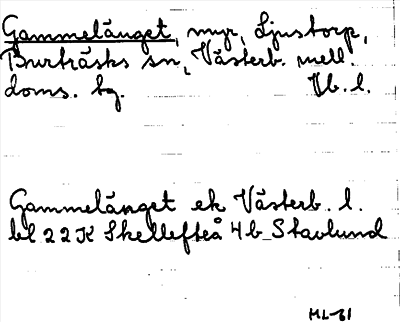 Gammelänget, myr, Ljustorp,
Burträsks sn, Västerb. mell.
doms. bg. Vb. l.
Gammelänget ek Västerb. l.
bl 22 K Skellefteå 4 b Stavlund
ML-61